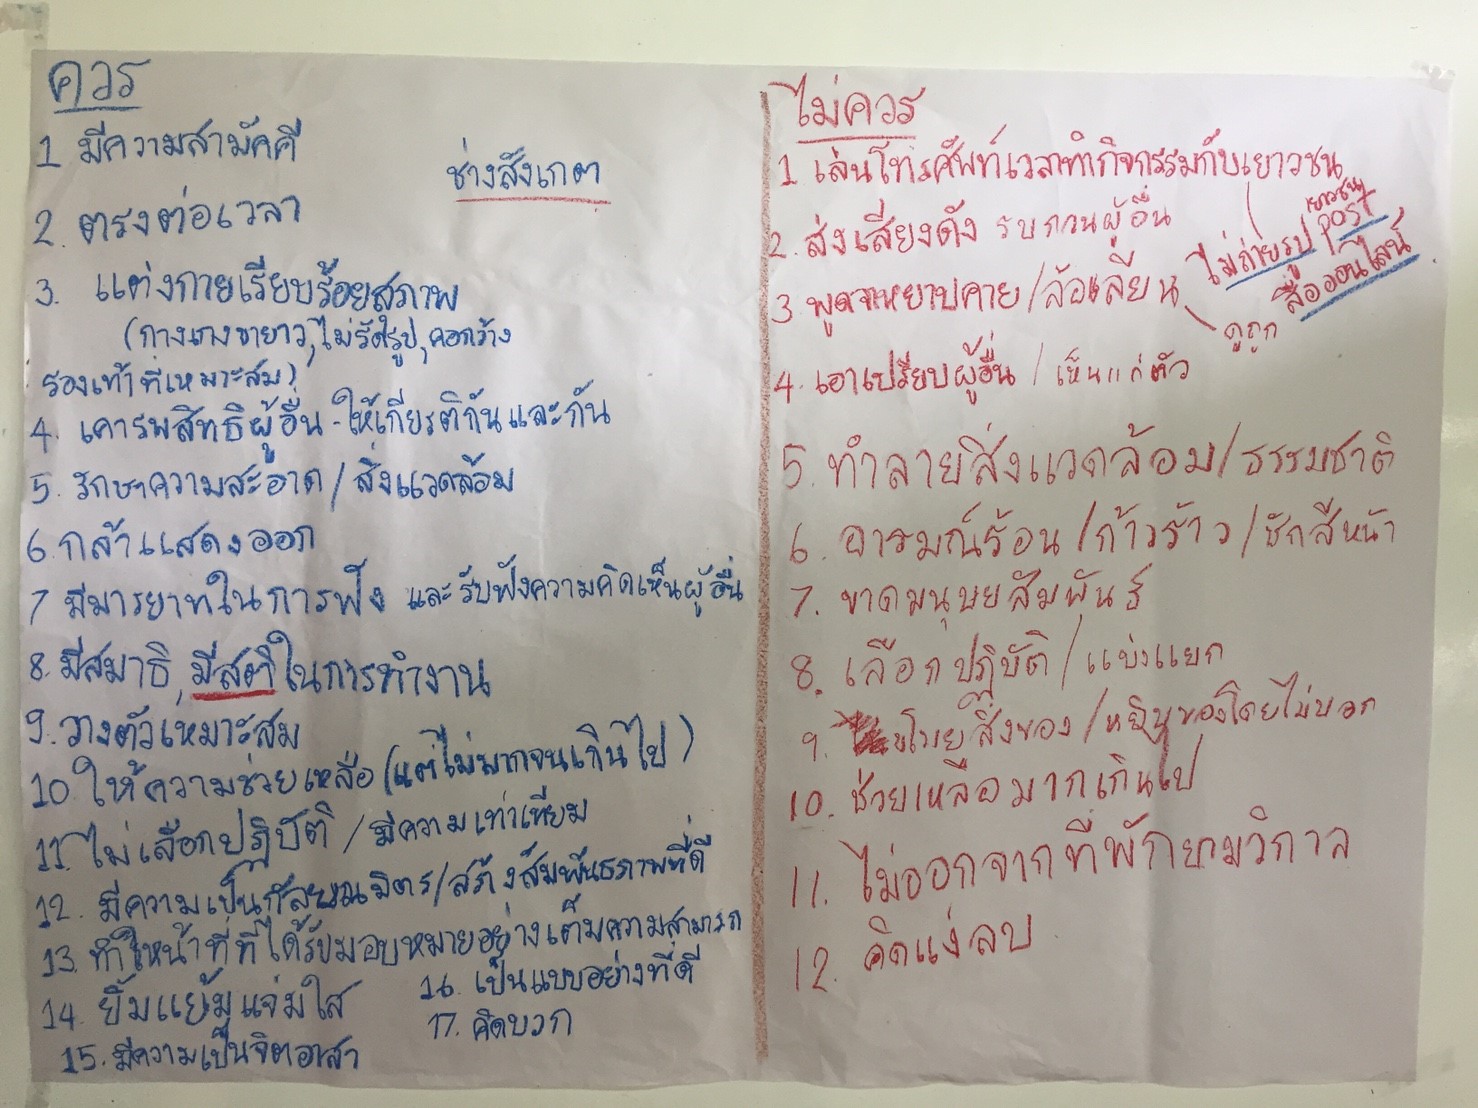 ควร
1 มีความสามัคคี
ช่างสังเกต
2. ตรงต่อเวลา
3. แต่งกายเรียบร้อยสุภาพ
(กางเกงขายาว, ไม่รัดรูป, คอกว้าง
รองเท้าที่เหมาะสม)
4. เคารพสิทธิผู้อื่น - ให้เกียรติกันและกัน
5. รักษาความสะอาด / สิ่งแวดล้อม
6. กล้าแสดงออก
7 มีมารยาทในการฟัง และรับฟังความคิดเห็นผู้อื่น
8. มีสมาธิ, มีสติในการทำงาน
9. วางตัวเหมาะสม
10. ให้ความช่วยเหลือ (แต่ไม่มากจนเกินไป)
11. ไม่เลือกปฏิบัติ / มีความเท่าเทียม
12. มีความเป็นกัลยาณมิตร/สร้างสัมพันธภาพที่ดี
13. ทำให้น้าที่ที่ได้รับมอบหมายอย่างเต็มความสามารถ
14. ยิ้มแย้มแจ่มใส
15. มีความเป็นจิตอาสา
16. เป็นแบบอย่างที่ดี
17. คิดบวก
ไม่ควร
1 เล่นโทรศัพท์เวลาทำกิจกรรมกับเยาวชน
ไม่ถ่ายรูปเยาวชน post
สื่อออนไลน์
2. ส่งเสียงดัง รบกวนผู้อื่น
3 พูดจาหยาบคาย / ล้อเลียน
ดูถูก
4. เอาเปรียบผู้อื่น / เห็นแก่ตัว
5. ทำลายสิ่งแวดล้อม / ธรรมชาติ
6. อารมณ์ร้อน / ก้าวร้าว / ชักสีหน้า
7. ขาดมนุษยสัมพันธ์
8. เลือกปฏิบัติ / แบ่งแยก
9. ขโมยสิ่งของ / หยิบของโดยไม่บอก
10. ช่วยเหลือมากเกินไป
11. ไม่ออกจากที่พักยามวิกาล
12. คิดแง่ลบ